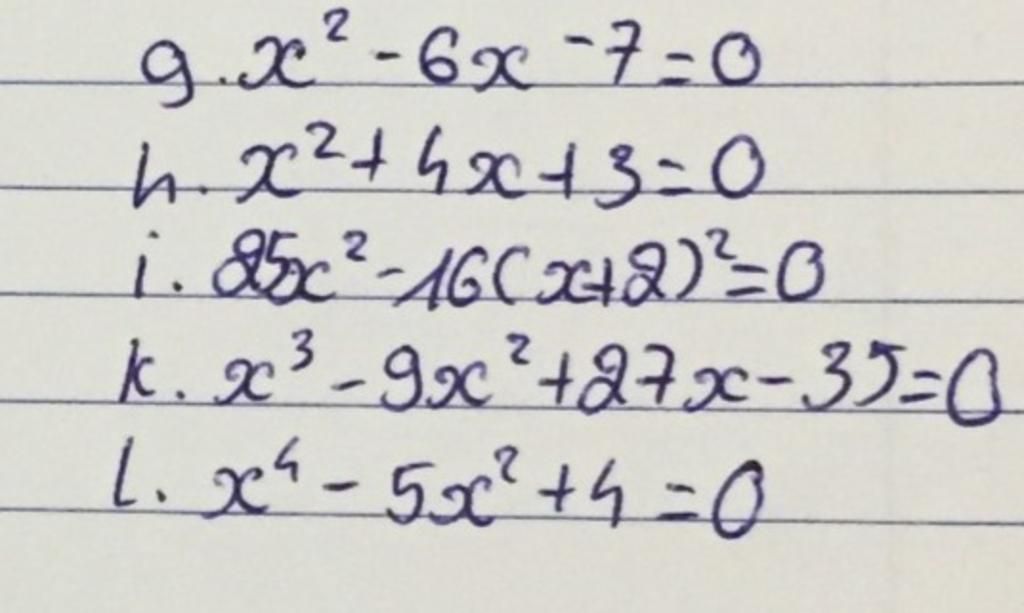 g. x² - 6x - 7 = 0
h. x² + 4x + 3 = 0
i. 25x² - 16(x+2)² = 0
k. x³ - 9x² + 27x - 35 = 0
l. x⁴ - 5x² + 4 = 0